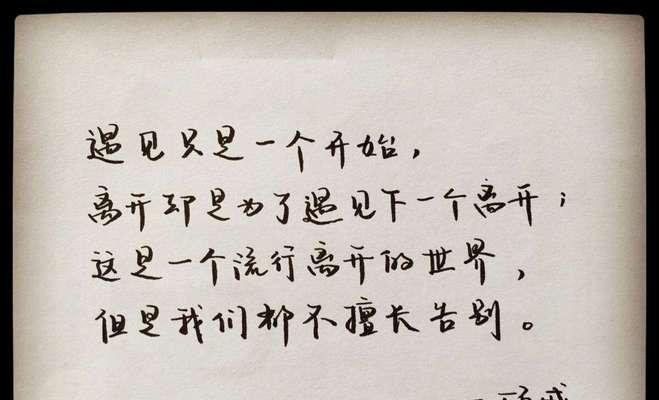 遇见只是一个开始，
离开却是为了遇见下一个离开；
这是一个流行离开的世界，
但是我们都不擅长告别。